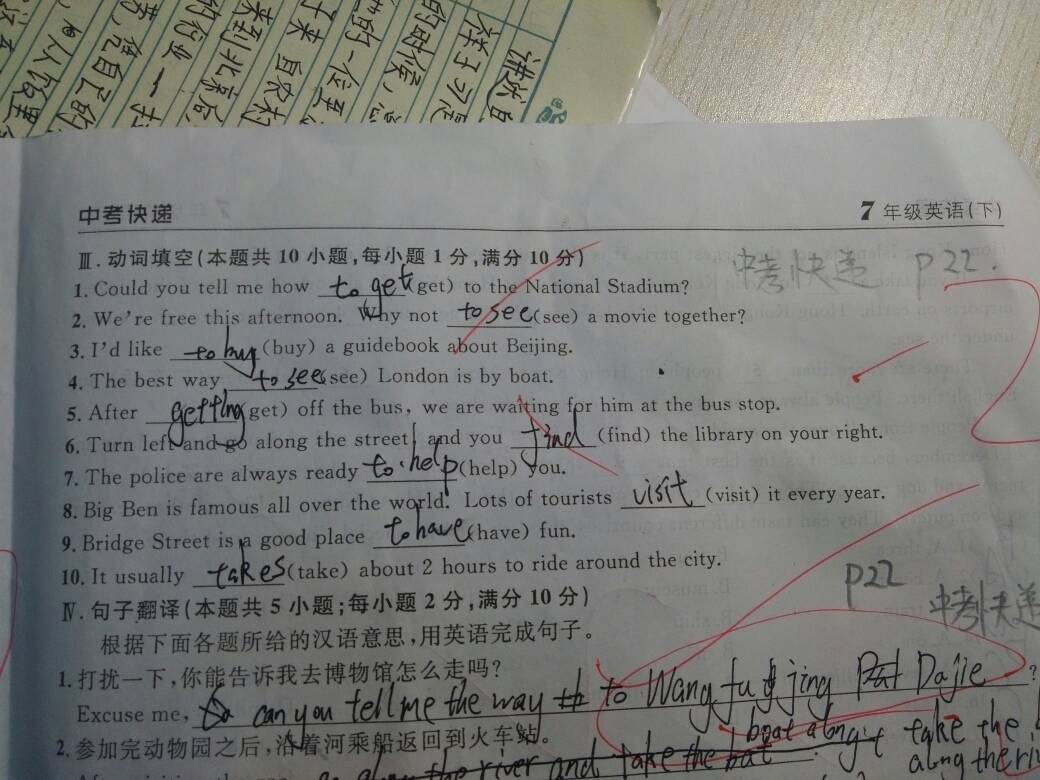 讲述自
样子习惯
的时候,
一位更
于来自农村
来到北京后,
的行业一
竟自己的
人人
中考快递
7年级英语(下)
Ⅲ.动词填空(本题共10小题,每小题1分,满分10分)
中考快递 P22.
1. Could you tell me how to get (get) to the National Stadium?
2. We're free this afternoon. Why not to see (see) a movie together?
3. I'd like to buy (buy) a guidebook about Beijing.
4. The best way to see (see) London is by boat.
5. After getting (get) off the bus, we are waiting for him at the bus stop.
6. Turn left and go along the street, and you find (find) the library on your right.
7. The police are always ready to help (help) you.
8. Big Ben is famous all over the world. Lots of tourists visit (visit) it every year.
9. Bridge Street is a good place to have (have) fun.
10. It usually takes (take) about 2 hours to ride around the city.
P22 中考快递
Ⅳ.句子翻译(本题共5小题;每小题2分,满分10分)
根据下面各题所给的汉语意思,用英语完成句子。
1. 打扰一下,你能告诉我去博物馆怎么走吗?
Excuse me, can you tell me the way to Wangfujing Dajie ?
2. 参加完动物园之后,沿着河乘船返回到火车站。
boat along take the
the river and take the bat along the ri